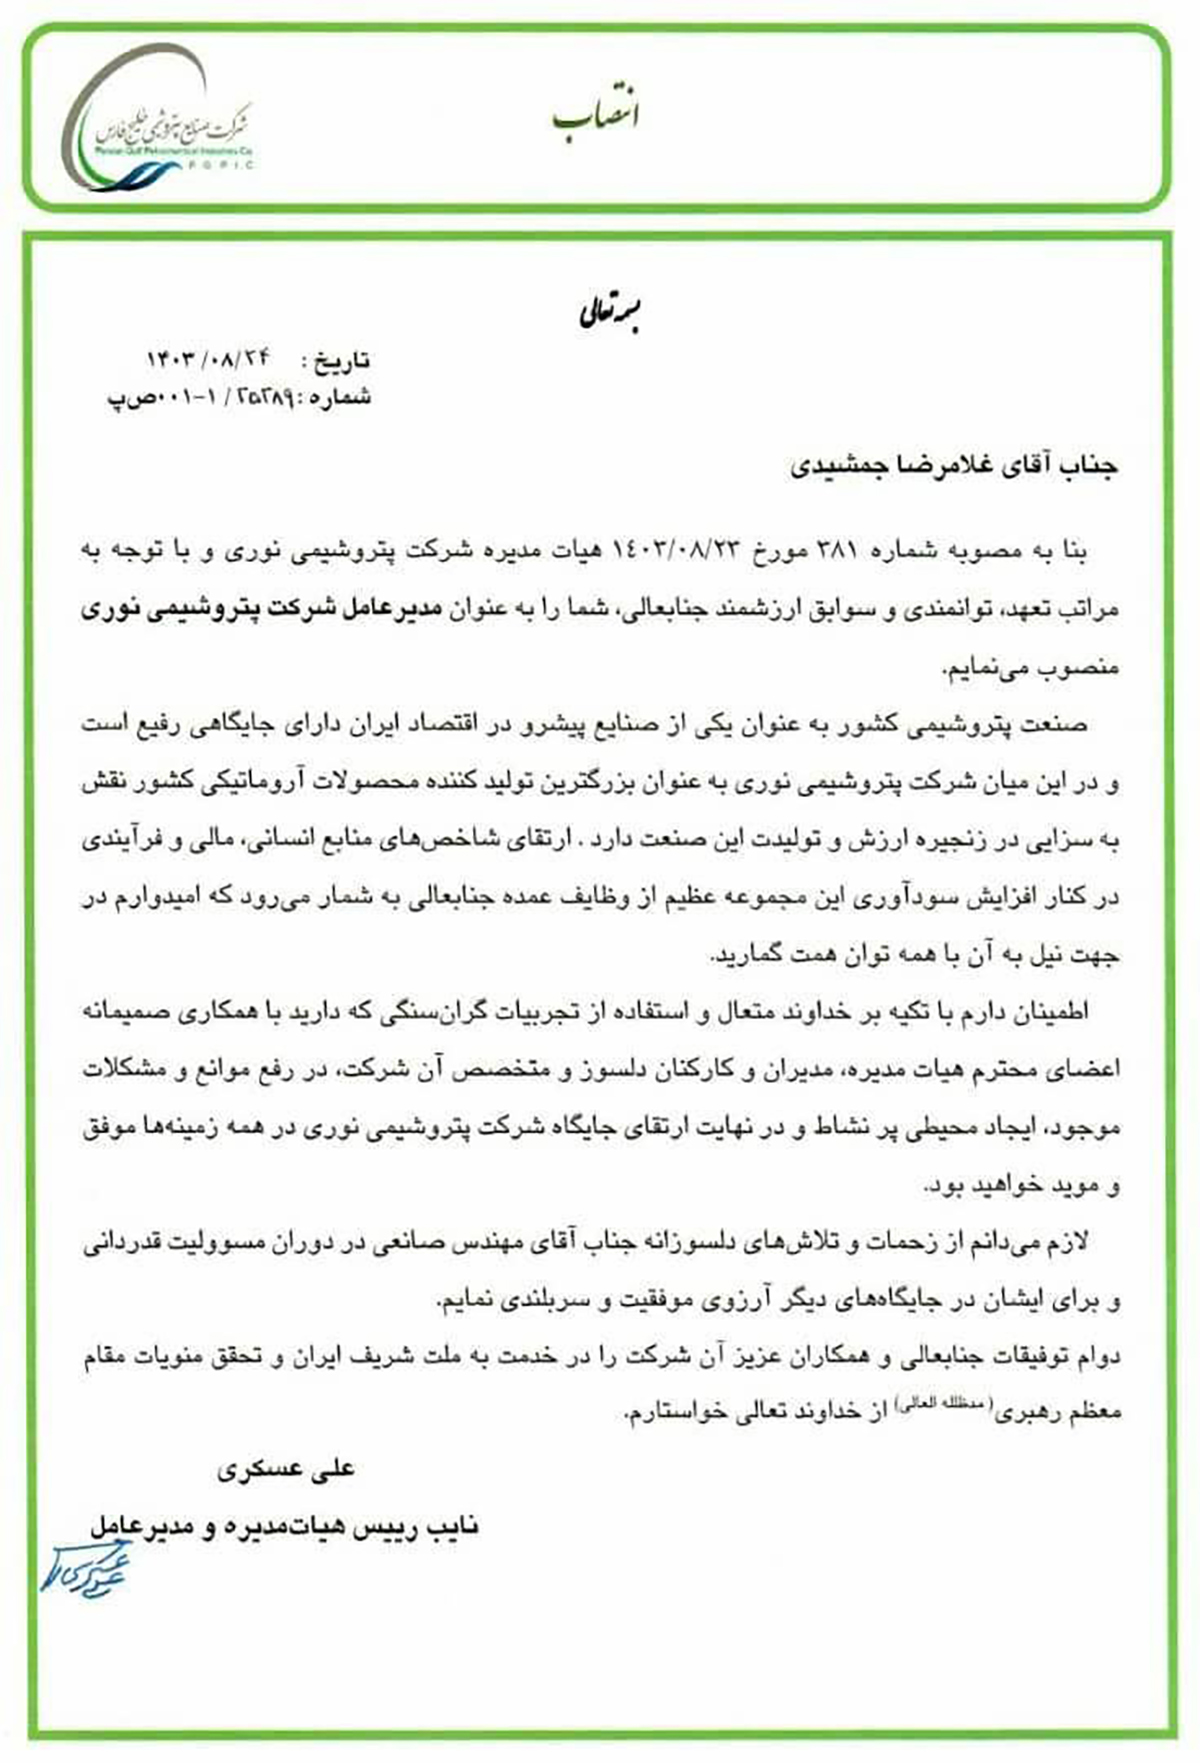 انتصاب
شرکت صنایع پتروشیمی خلیج فارس
Persian Gulf Petrochemical Industries Co.
PGPIC
بسمه تعالی
تاریخ : ۱۴۰۳/۰۸/۲۴
شماره : ۲۵۲۸۹ / ۱-۰۰۱ص‌پ
جناب آقای غلامرضا جمشیدی
بنا به مصوبه شماره ۳۸۱ مورخ ۱٤۰۳/۰۸/۲۳ هیات مدیره شرکت پتروشیمی نوری و با توجه به
مراتب تعهد، توانمندی و سوابق ارزشمند جنابعالی، شما را به عنوان مدیرعامل شرکت پتروشیمی نوری
منصوب می‌نمایم.
صنعت پتروشیمی کشور به عنوان یکی از صنایع پیشرو در اقتصاد ایران دارای جایگاهی رفیع است
و در این میان شرکت پتروشیمی نوری به عنوان بزرگترین تولید کننده محصولات آروماتیکی کشور نقش
به سزایی در زنجیره ارزش و تولیدت این صنعت دارد . ارتقای شاخص‌های منابع انسانی، مالی و فرآیندی
در کنار افزایش سودآوری این مجموعه عظیم از وظایف عمده جنابعالی به شمار می‌رود که امیدوارم در
جهت نیل به آن با همه توان همت گمارید.
اطمینان دارم با تکیه بر خداوند متعال و استفاده از تجربیات گران‌سنگی که دارید با همکاری صمیمانه
اعضای محترم هیات مدیره، مدیران و کارکنان دلسوز و متخصص آن شرکت، در رفع موانع و مشکلات
موجود، ایجاد محیطی پر نشاط و در نهایت ارتقای جایگاه شرکت پتروشیمی نوری در همه زمینه‌ها موفق
و موید خواهید بود.
لازم می‌دانم از زحمات و تلاش‌های دلسوزانه جناب آقای مهندس صانعی در دوران مسوولیت قدردانی
و برای ایشان در جایگاه‌های دیگر آرزوی موفقیت و سربلندی نمایم.
دوام توفیقات جنابعالی و همکاران عزیز آن شرکت را در خدمت به ملت شریف ایران و تحقق منویات مقام
معظم رهبری(مدظله العالی) از خداوند تعالی خواستارم.
علی عسکری
نایب رییس هیات‌مدیره و مدیرعامل